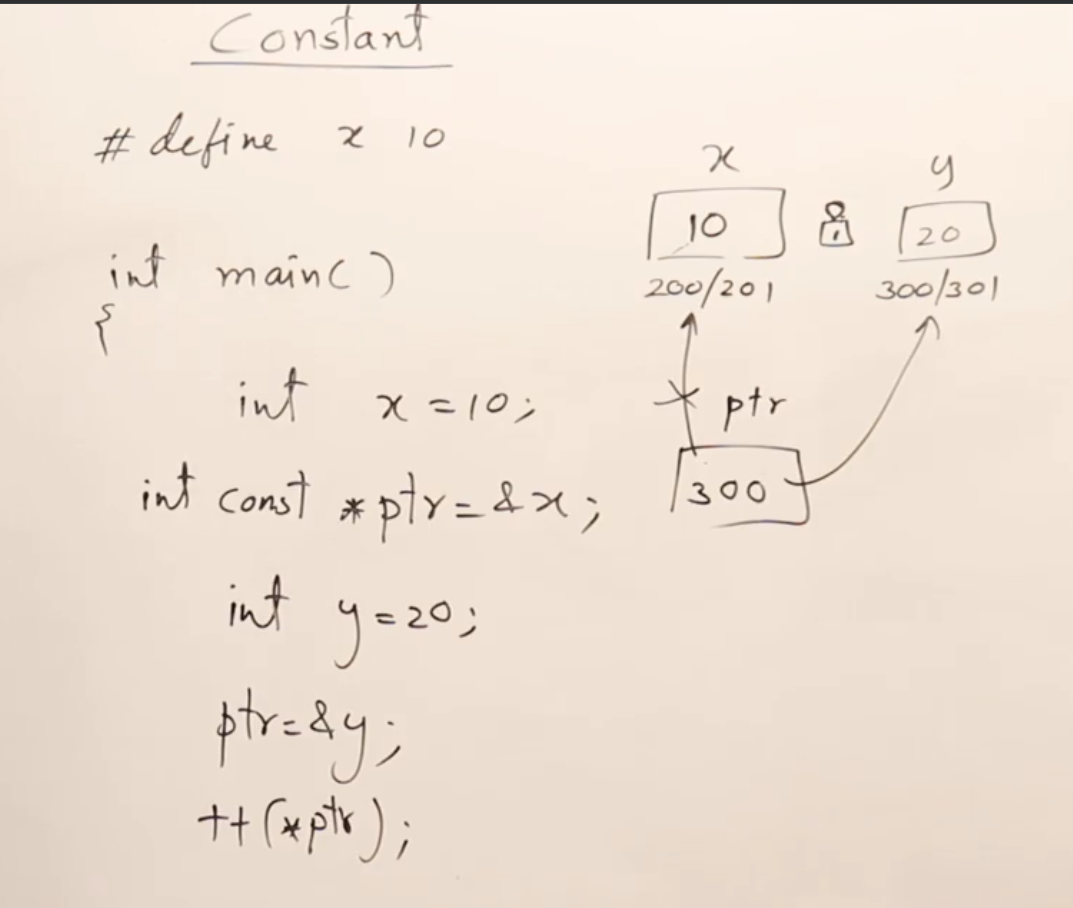 Constant
# define x 10
int main()
{
int x = 10;
int const *ptr = &x;
int y = 20;
ptr = &y;
++(*ptr);
x y
10 20
200/201 300/301
ptr
300